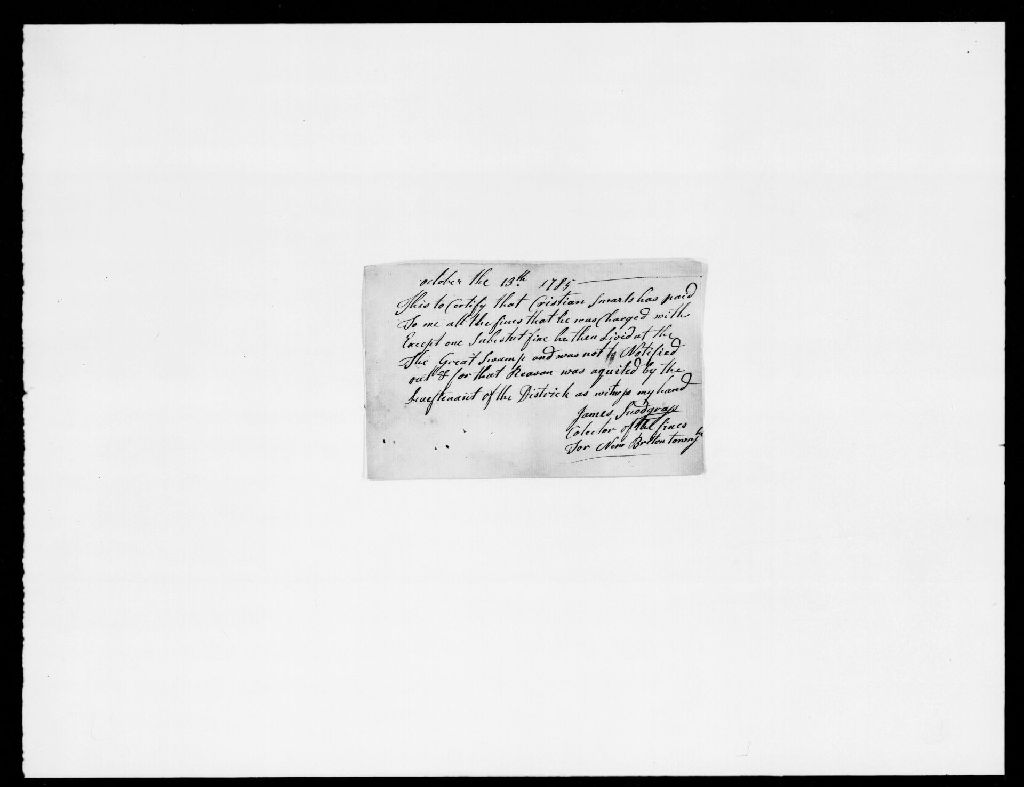 october the 13th 1785
This to Certify that Cristian Swarts has paid
To me all the fines that he was Charged with
Except one Substut fine he then Lived at the
The Great Swamp and was not to Notified
out & for that Reason was aquited by the
of the District as witness my hand
James Snodgrass
Colector of the fines
For New Briton